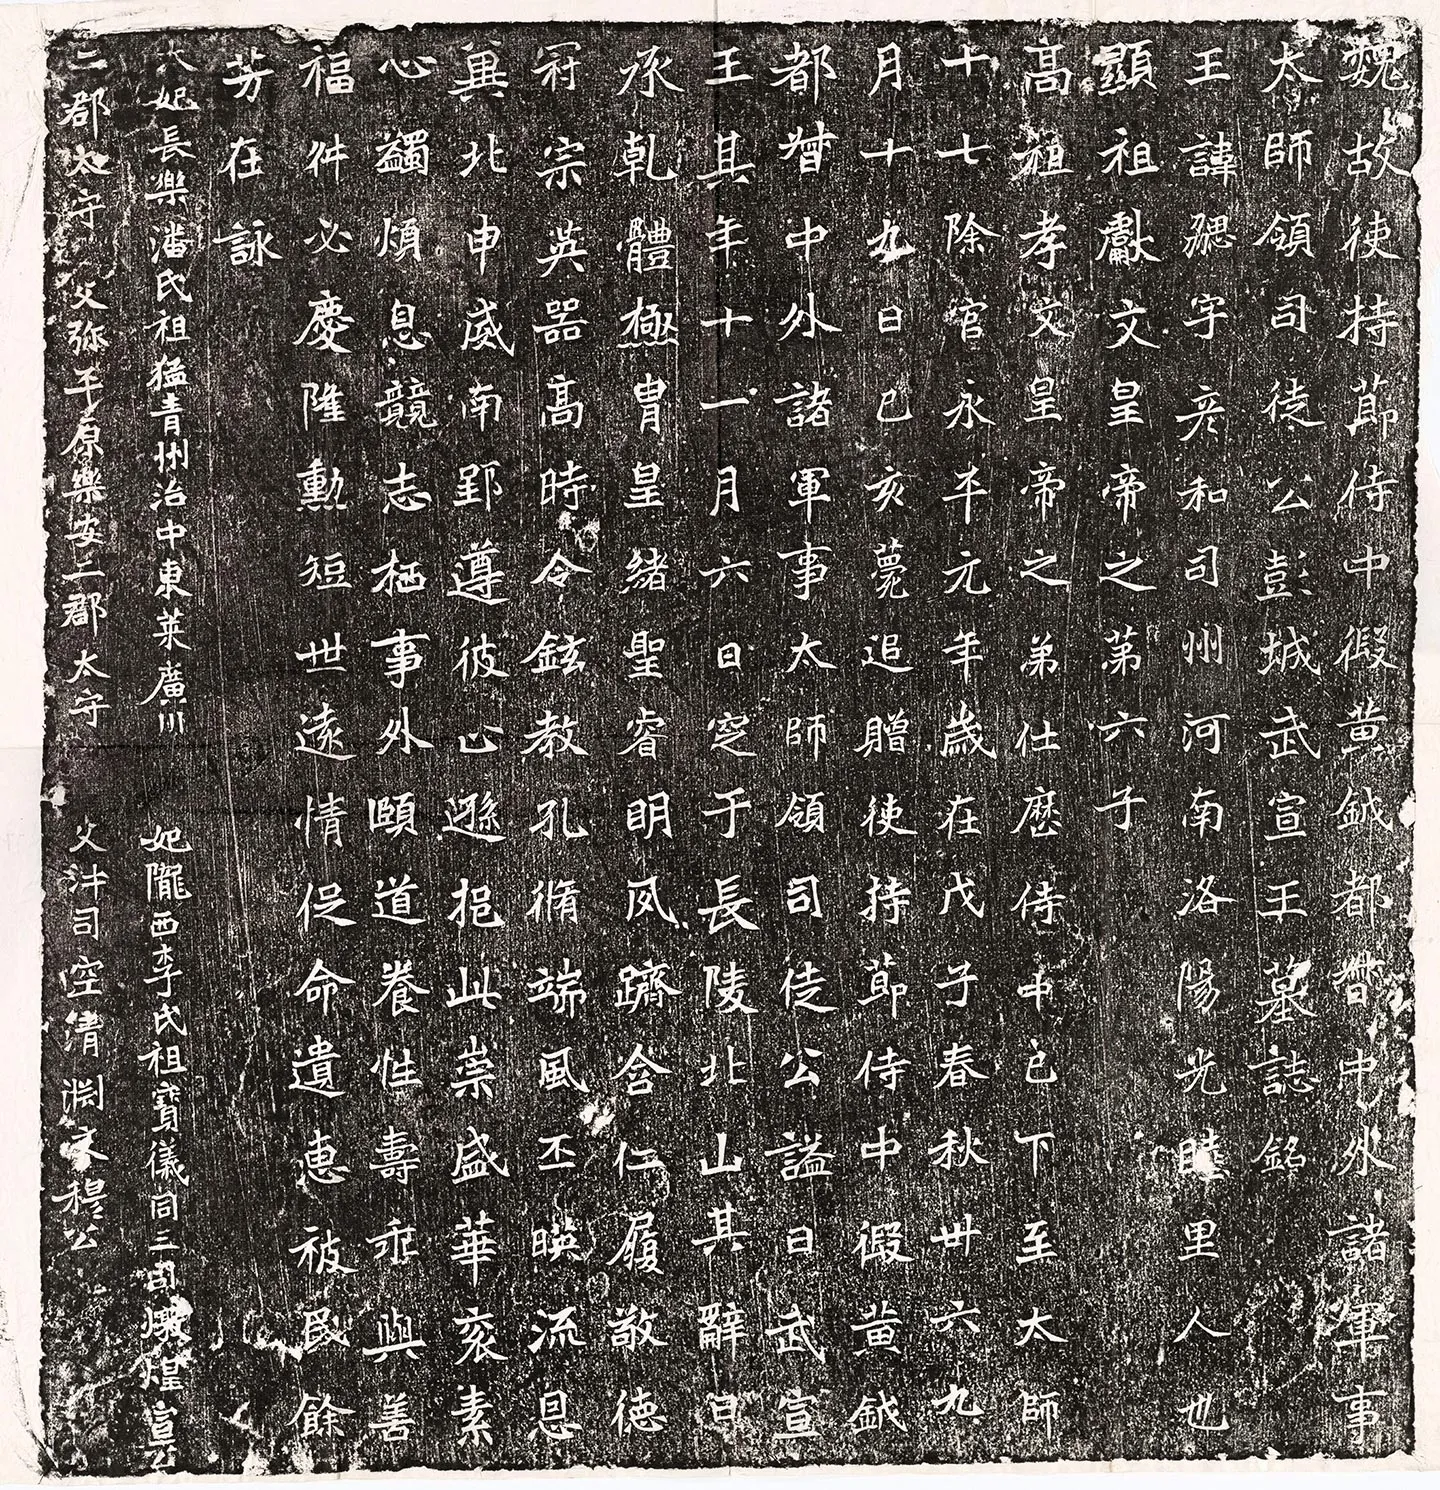 魏故使持節侍中假黄鉞都督中外諸軍事
太師領司徒公彭城武宣王墓誌銘
王諱勰字彦和司州河南洛陽光睦里人也
顯祖獻文皇帝之第六子
高祖孝文皇帝之弟仕歷侍中已下至太師
十七除官永平元年歲在戊子春秋卅六九
月十九日己亥薨追贈使持節侍中假黄鉞
都督中外諸軍事太師領司徒公謚曰武宣
王其年十一月六日窆于長陵北山其辭曰
承乾體極胄皇緒聖睿明夙躋含仁履敬德
冠宗英器高時令鉉教孔脩端風丕映流恩
冀北申威南郢遵彼止遜挹此崇盛華衮素
心蠲煩息競志栖事外頤道養性壽乖與善
福舛必慶隆勳短世遠情促命遺惠被民餘
芳在詠
太妃長樂潘氏祖猛青州治中東萊廣川
二郡太守 父弥平原樂安二郡太守
妃隴西李氏祖寶儀同三司燉煌宣公
父沖司空清淵文穆公